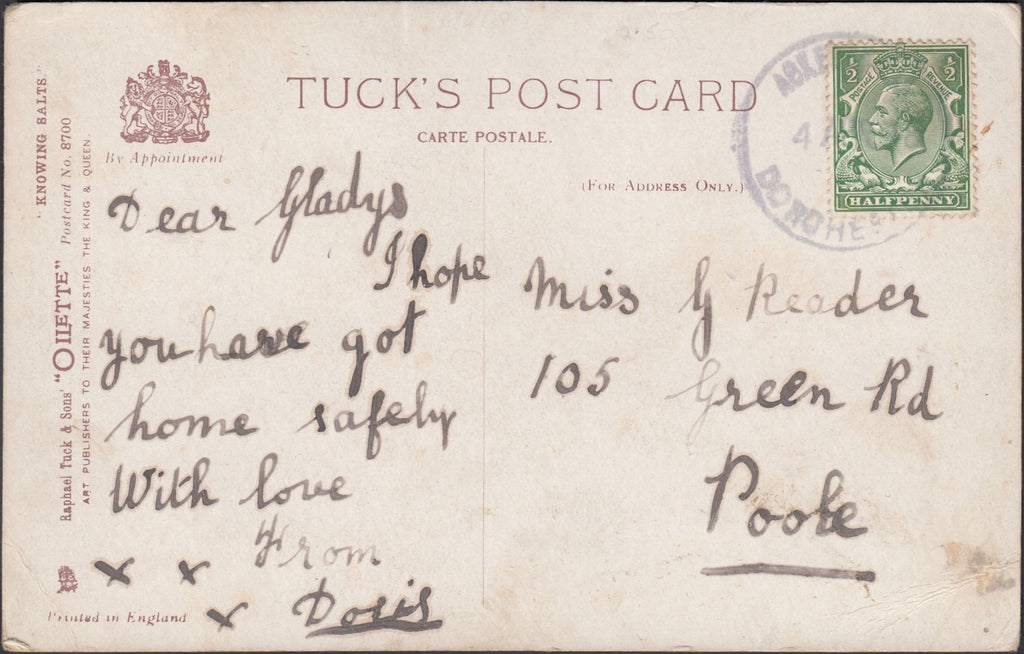 "KNOWING SALTS."
Postcard No. 8700
Raphael Tuck & Sons' "OILETTE"
ART PUBLISHERS TO THEIR MAJESTIES THE KING & QUEEN.
By Appointment
TUCK'S POST CARD
CARTE POSTALE.
(FOR ADDRESS ONLY.)
POSTAGE REVENUE
1/2 1/2
HALFPENNY
4
DORCHE
Dear Gladys
I hope
you have got
home safely
With love
From
x x
x Doris
Miss G Reader
105 Green Rd
Poole
Printed in England